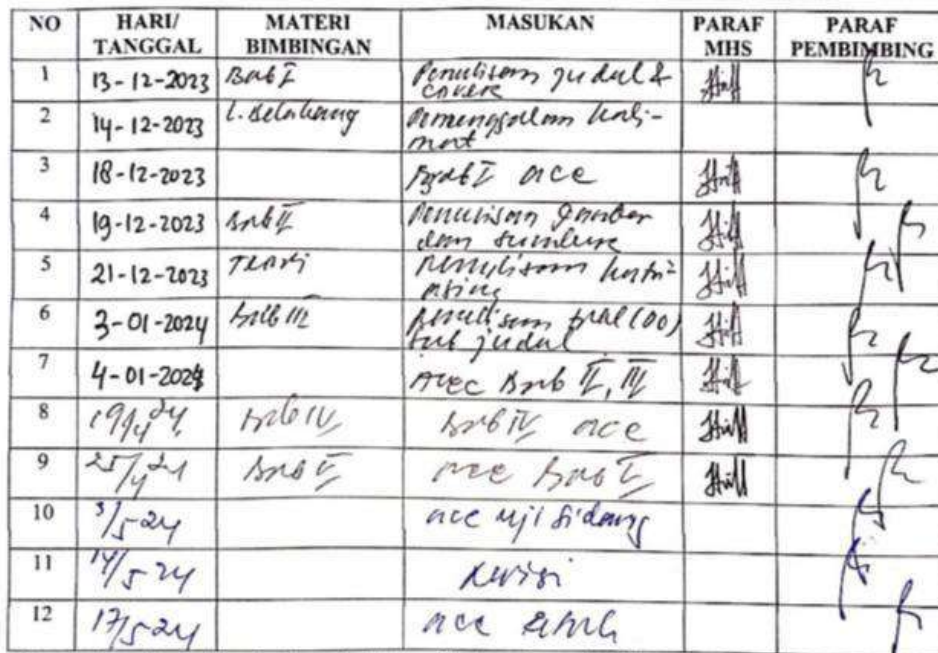 NO HARI/ TANGGAL MATERI BIMBINGAN MASUKAN PARAF MHS PARAF PEMBIMBING
1 13-12-2023 Bab I Penulisan judul & cover
2 14-12-2023 L. Belakang Pemenggalan kali-
mat
3 18-12-2023 Bab I acc
4 19-12-2023 Bab II Penulisan Gambar
dan sumber
5 21-12-2023 Teori Penulisan kata²
asing
6 3-01-2024 Bab III Penulisan
sub judul
7 4-01-2024 Acc Bab II, III
8 19/4 24 Bab IV Bab IV acc
9 25/4 24 Bab V acc Bab V
10 3/5 24 acc uji sidang
11 14/5 24 Revisi
12 17/5 24 acc